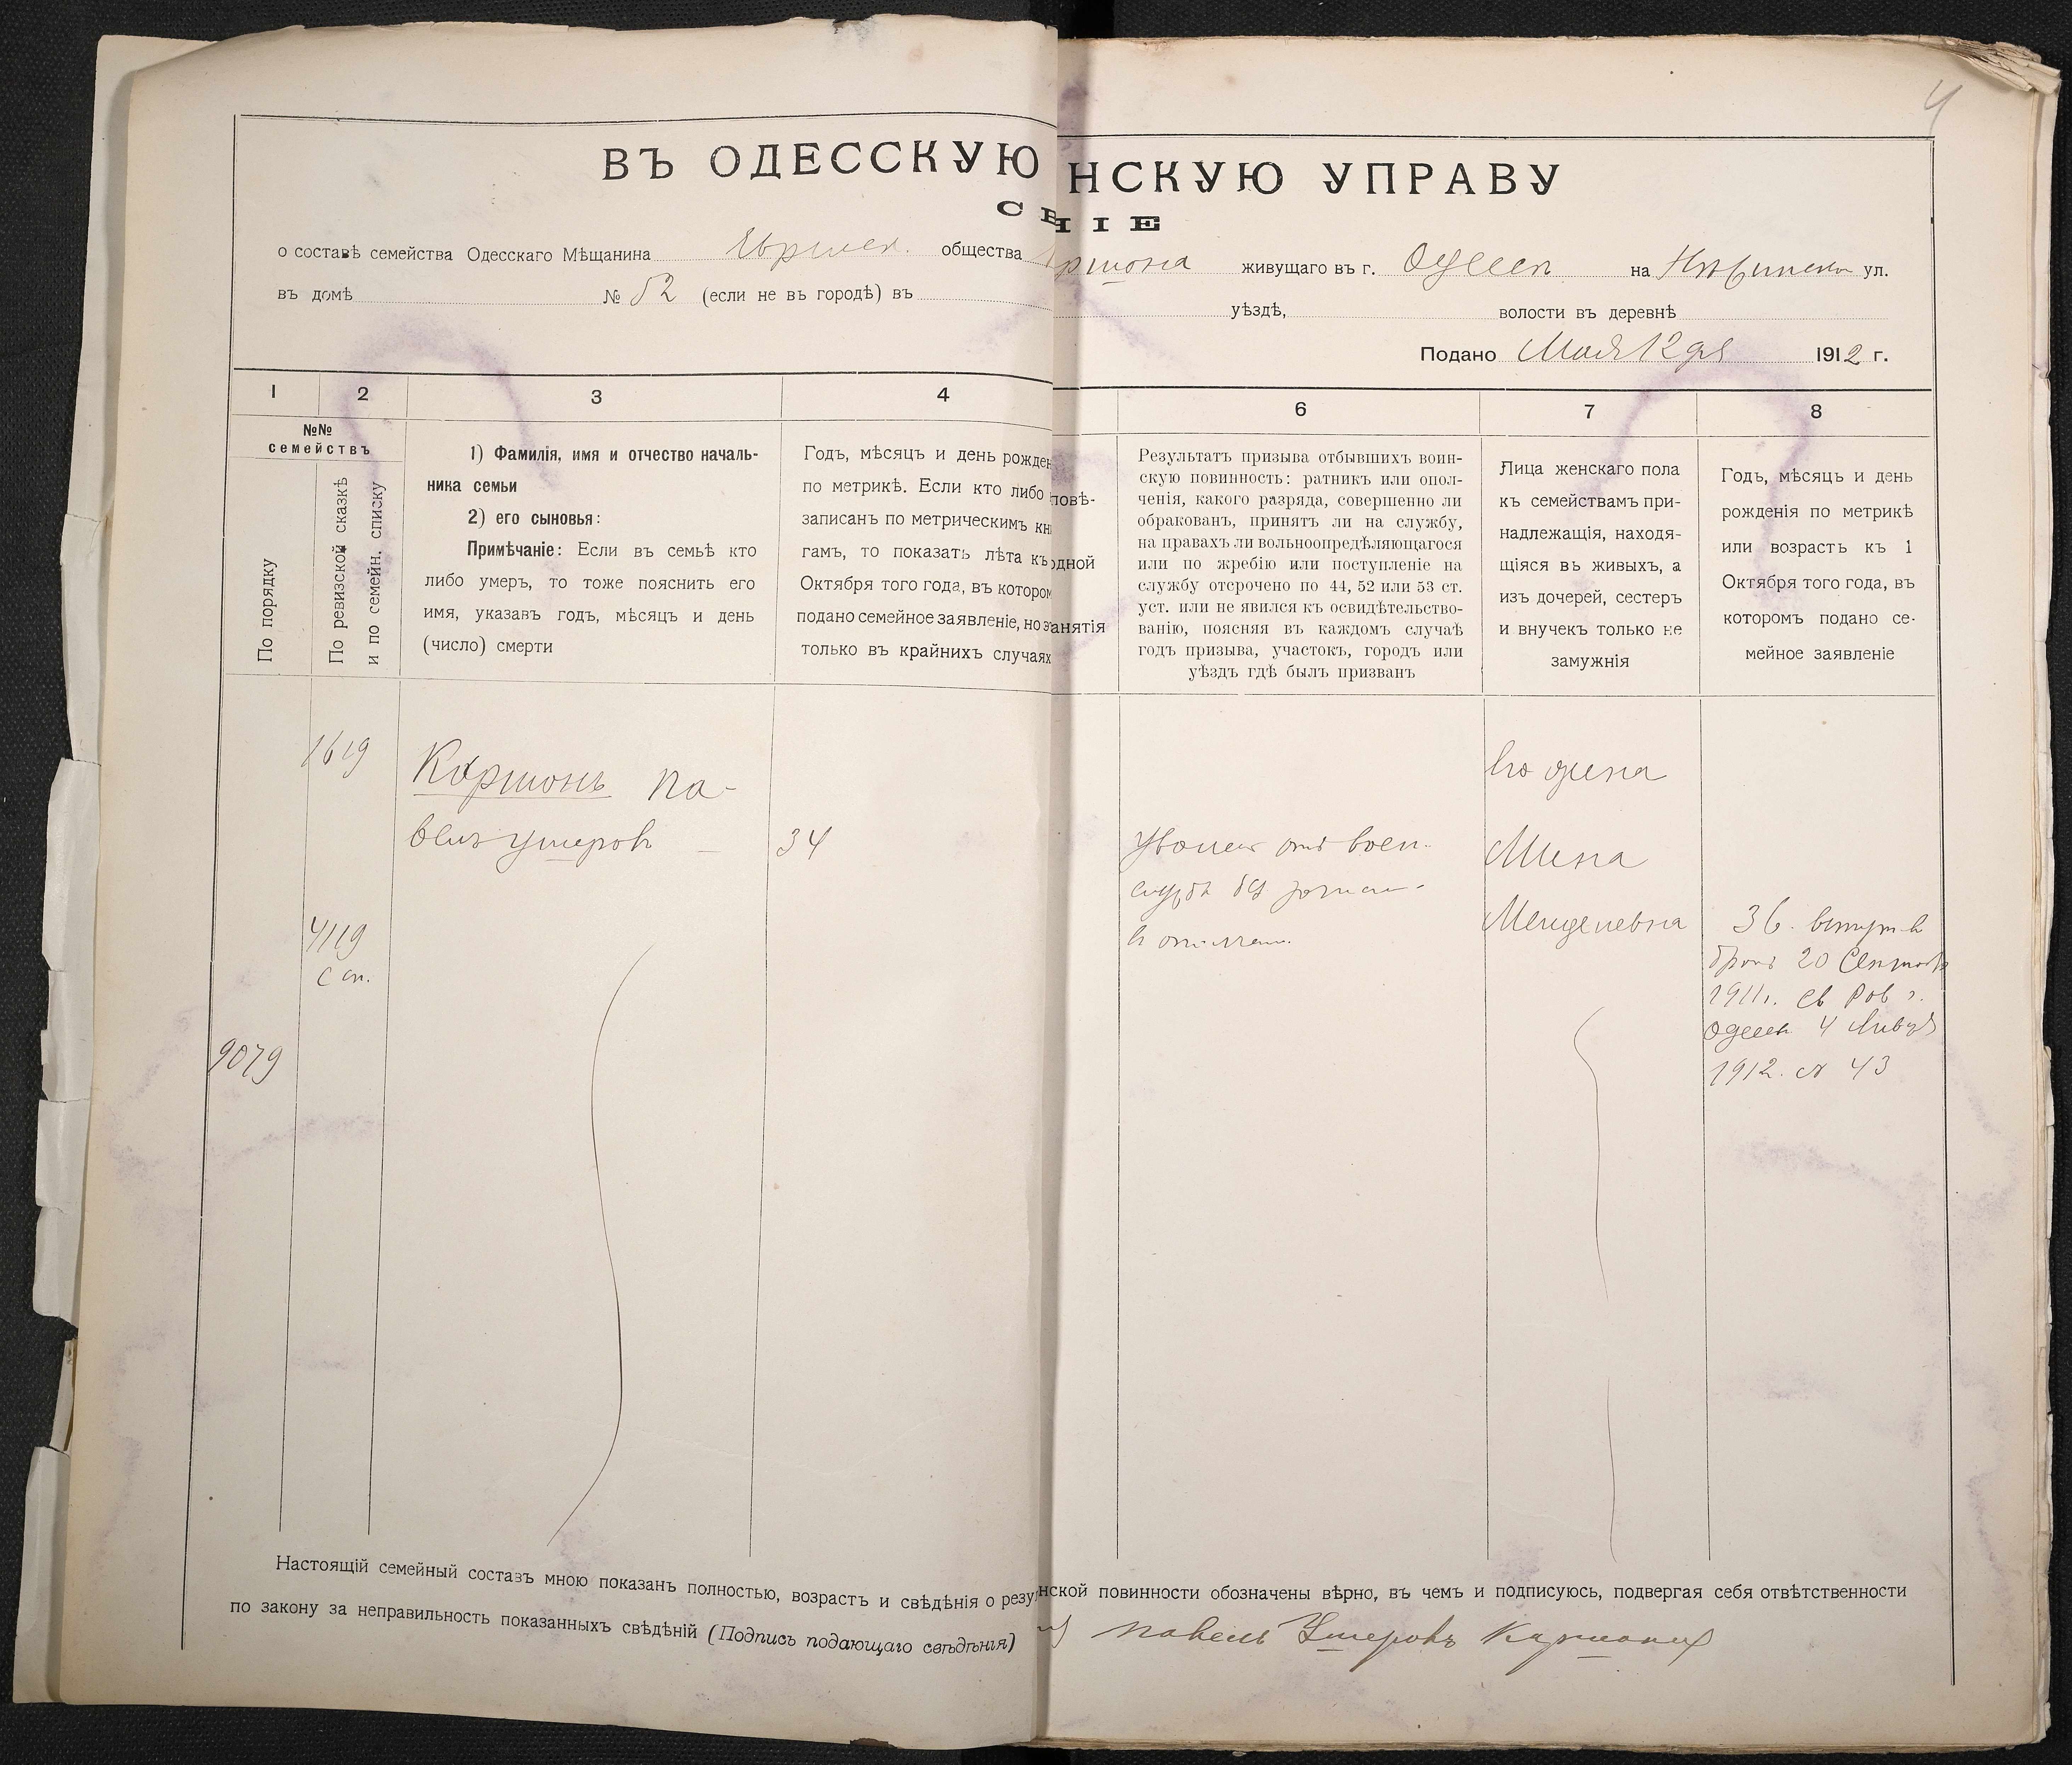 4
ВЪ ОДЕССКУЮ НСКУЮ УПРАВУ
СВ НІЕ
о составѣ семейства Одесскаго Мѣщанина общества ршона живущаго въ г. Одессѣ на Нѣжинской ул.
въ домѣ № 52 (если не въ городѣ) въ уѣздѣ, волости въ деревнѣ
Подано Мая 12 дня 1912 г.
1 2 3 4 6 7 8
№№
семействъ
По порядку
По ревизской сказкѣ
и по семейн. списку
1) Фамилія, имя и отчество началь-
ника семьи
2) его сыновья:
Примѣчаніе: Если въ семьѣ кто
либо умеръ, то тоже пояснить его
имя, указавъ годъ, мѣсяцъ и день
(число) смерти
Годъ, мѣсяцъ и день рожден
по метрикѣ. Если кто либо
записанъ по метрическимъ кн
гамъ, то показать лѣта къ
Октября того года, въ котором
подано семейное заявленіе, но э
только въ крайнихъ случаях
повѣ-
одной
анятія
Результатъ призыва отбывшихъ воин-
скую повинность: ратникъ или опол-
ченія, какого разряда, совершенно ли
обракованъ, принятъ ли на службу,
на правахъ ли вольноопредѣляющагося
или по жребію или поступленіе на
службу отсрочено по 44, 52 или 53 ст.
уст. или не явился къ освидѣтельство-
ванію, поясняя въ каждомъ случаѣ
годъ призыва, участокъ, городъ или
уѣздъ гдѣ былъ призванъ
Лица женскаго пола
къ семействамъ при-
надлежащія, находя-
щіяся въ живыхъ, а
изъ дочерей, сестеръ
и внучекъ только не
замужнія
Годъ, мѣсяцъ и день
рожденія по метрикѣ
или возрастъ къ 1
Октября того года, въ
которомъ подано се-
мейное заявленіе
1619
4119
с сп.
9079
Коршонъ Па-
велъ Ушеровъ
34
от воен.
Его жена
Мина
Менделевна
36. вступ. в
бракъ 20 Сентяб
1911г. св Рав г.
Одессы 4 Янвря
1912. № 43
Настоящій семейный составъ мною показанъ полностью, возрастъ и свѣдѣнія о резу нской повинности обозначены вѣрно, въ чемъ и подписуюсь, подвергая себя отвѣтственности
по закону за неправильность показанныхъ свѣдѣній (Подпись подающаго свѣдѣнія) Павелъ Ушеровъ